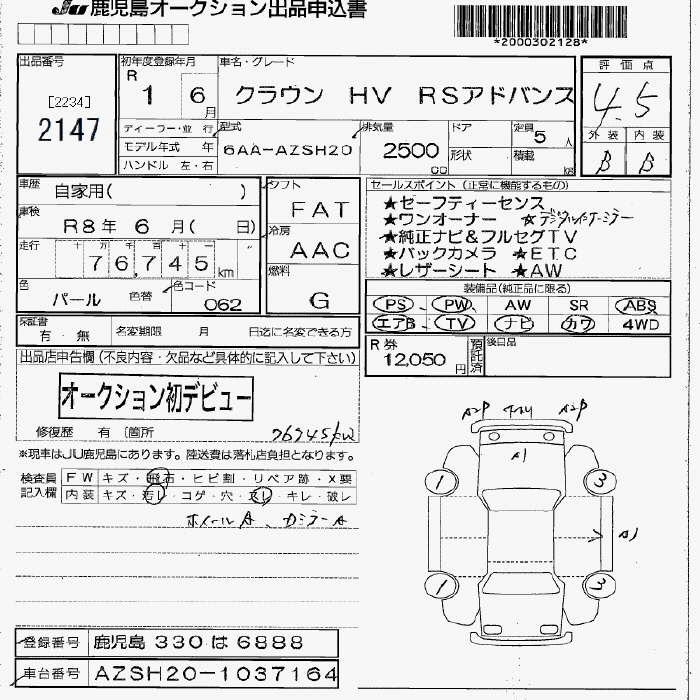 JU 鹿児島オークション出品申込書
*2000302128*
出品番号
[2234]
2147
初年度登録年月
R 1 6月
車名・グレード
クラウン HV RSアドバンス
評価点
4.5
外装 内装
B B
ディーラー・並行
モデル年式 年
ハンドル 左・右
型式
6AA-AZSH20
排気量
2500 cc
ドア
形状
定員 5人
積載 kg
車歴 自家用( )
車検 R8年 6月( 日)
走行 十万千百十一
76,745km
色 パール 色替 色コード 062
シフト FAT
冷房 AAC
燃料 G
セールスポイント(正常に機能するもの)
★セーフティーセンス
★ワンオーナー ★デジタルインナーミラー
★純正ナビ&フルセグTV
★バックカメラ ★ETC
★レザーシート ★AW
装備品(純正品に限る)
PS、PW、AW SR ABS
エアB TV ナビ カワ 4WD
保証書 有・無 名変期限 月 日迄に名変できる方
R券 12,050円 預託済
後日品
出品店申告欄(不良内容・欠品など具体的に記入して下さい)
オークション初デビュー
修復歴 有 〔箇所
76745km
※現車はJU鹿児島にあります。陸送費は落札店負担となります。
検査員記入欄
FW キズ・飛石・ヒビ割・リペア跡・X要
内装 キズ・汚レ・コゲ・穴・スレ・キレ・破レ
ホイールA、Dミラー A
A2P A2P
A1
1 3
A1
1 3
登録番号 鹿児島 330 は 6888
車台番号 AZSH20-1037164